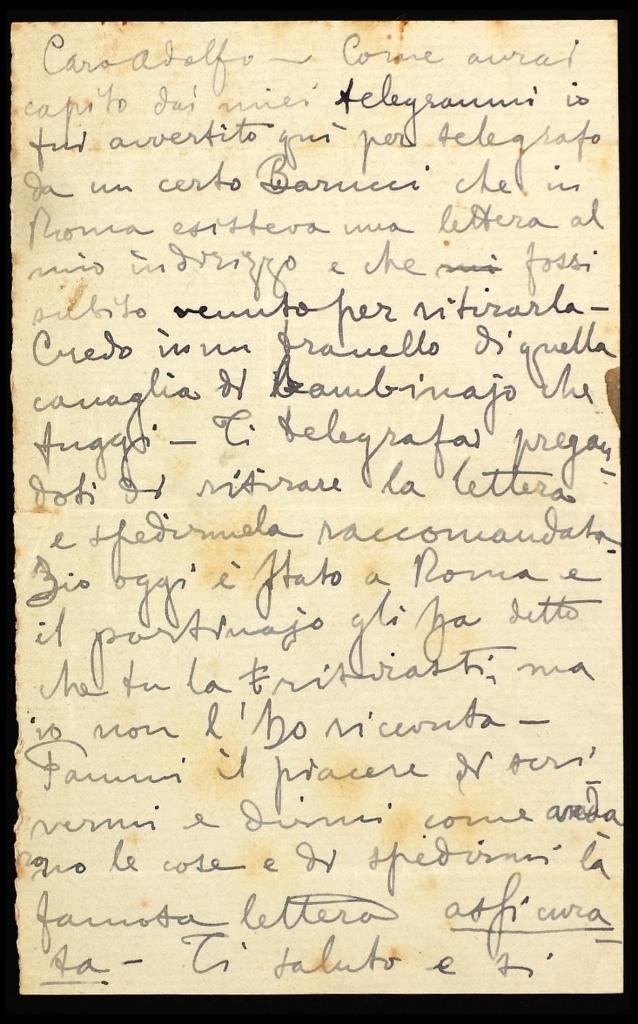 Caro Adolfo — Come avrai
capito dai miei telegrammi io
fui avvertito quì per telegrafo
da un certo Barucci che in
Roma esisteva una lettera al
mio indirizzo e che mi fossi
subito venuto per ritirarla —
Credo in un tranello di quella
canaglia di bambinajo che
fuggì — Ti telegrafai pregan
doti di ritirare la lettera
e spedirmela raccomandata
Zio oggi è stato a Roma e
il portinajo gli ha detto
che tu la ritirasti, ma
io non l'ho ricevuta —
Fammi il piacere di scri
vermi e dirmi come anda
rono le cose e di spedirmi la
famosa lettera assicura
ta — Ti saluto e si